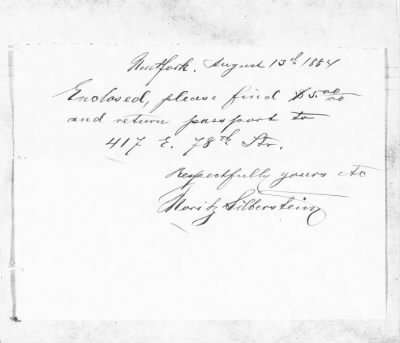 New York. August 13th 1884
Enclosed, please find $5.00/00
and return passport to
417 E. 78th Str.
Respectfully yours etc
Moritz Silberstein